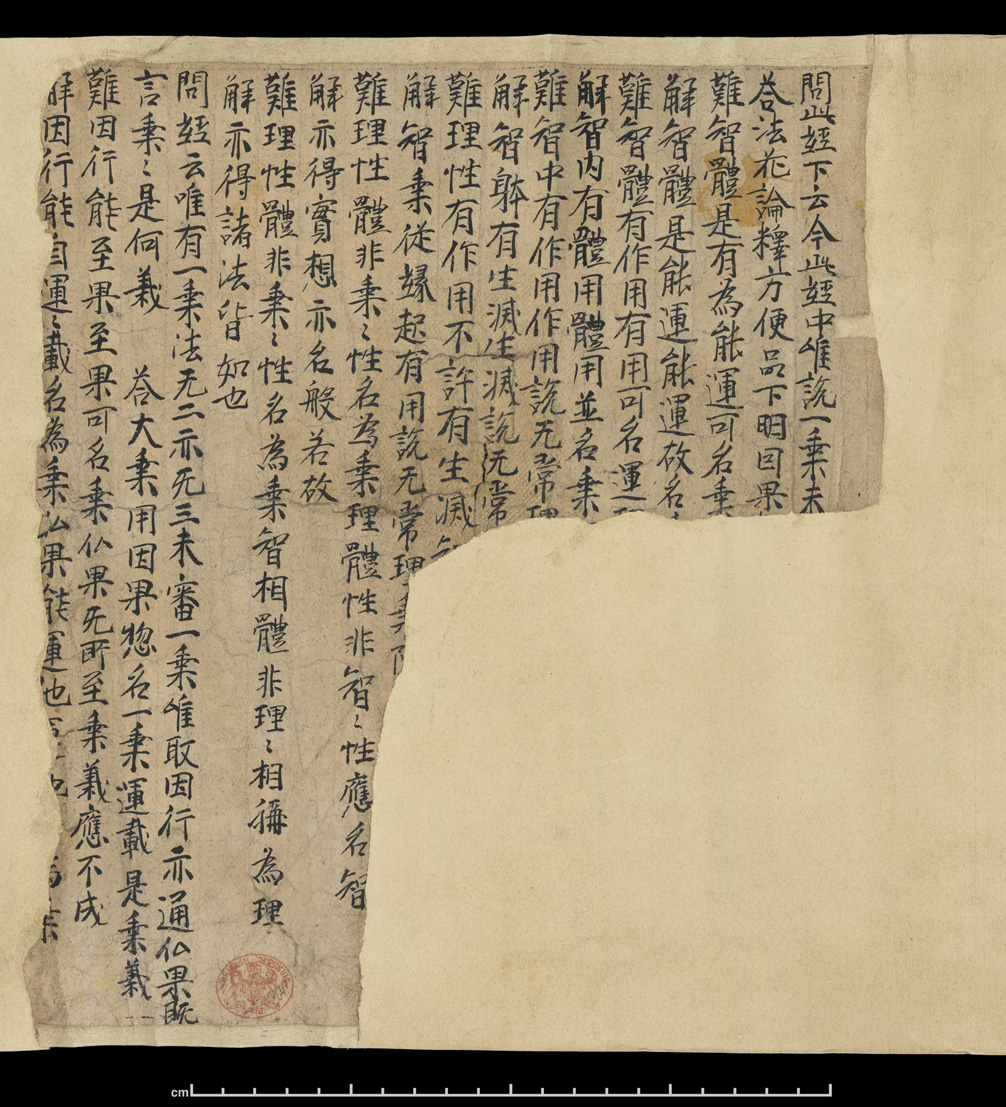 問此經下云今此經中唯說一乘未
荅法花論釋方便品下明因果
難智體是有為能運可名乘
解智體是能運能運故名
難智體有作用有用可名運
解智內有體用體用並名乘
難智中有作用作用說无常理
解智躰有生滅生滅說无常
難理性有作用不許有生滅
解智乘從緣起有用說无常理乘
難理性體非乘〻性名為乘理體性非智〻性應名智
解亦得實想亦名般若故
難理性體非乘〻性名為乘智相體非理〻相稱為理
解亦得諸法皆如也
問經云唯有一乘法无二亦无三未審一乘唯取因行亦通仏果既
言乘〻是何義 荅大乘用因果惣名一乘運載是乘義
難因行能至果至果可名乘仏果无所至乘義應不成
解因行能自運〻載名為乘仏果能運他